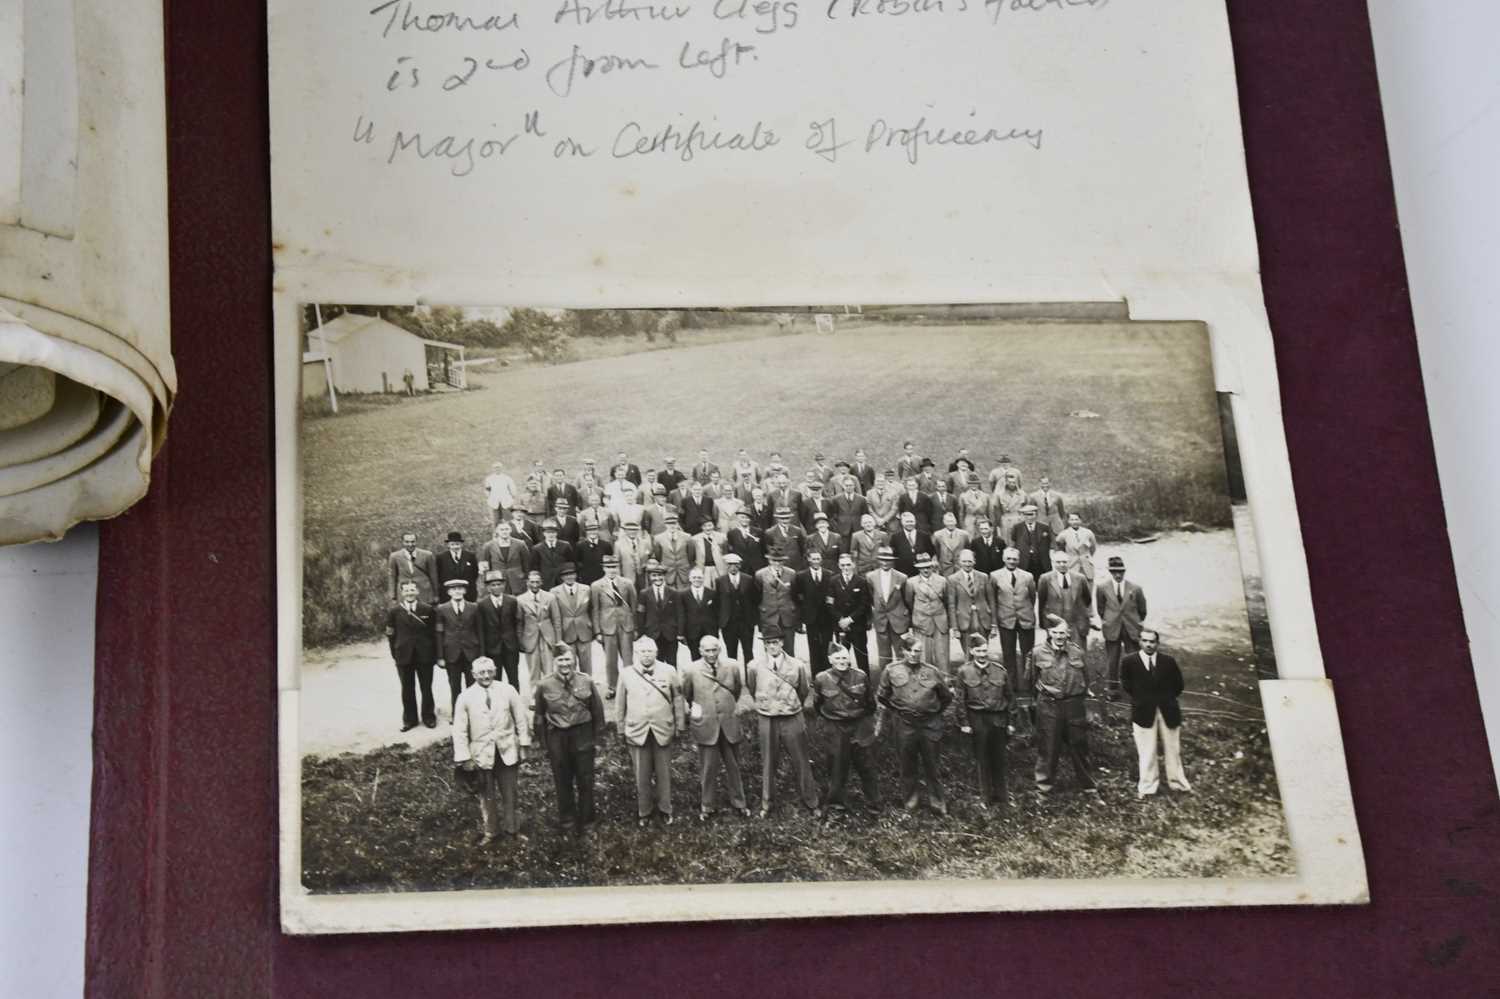 Thomas Arthur Clegg (Robin's father)
is 2nd from left.
"Major" on Certificate of Proficiency